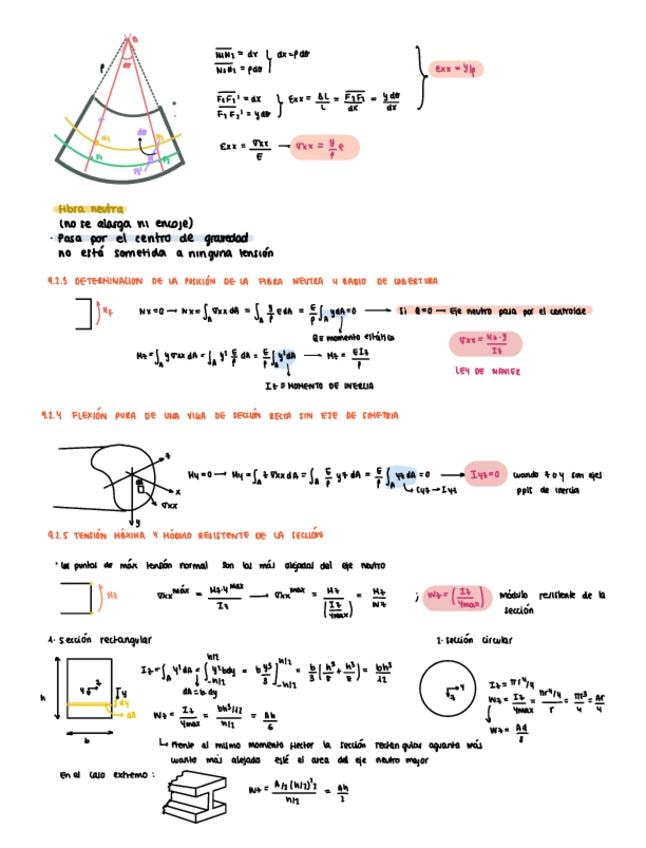 O
dθ
ρ
N1N2 = dx
N1N2 = ρdθ } dx = ρdθ
F1F2' = dx
F1'F2' = ydθ } εxx = ΔL/L = F2F2'/dx = ydθ/dx
εxx = y/ρ
εxx = σxx/E → σxx = y/ρ e
Fibra neutra
(no se alarga ni encoje)
· Pasa por el centro de gravedad
no está sometida a ninguna tensión
9.2.3 DETERMINACION DE LA POSICIÓN DE LA FIBRA NEUTRA Y RADIO DE COBERTURA
Mz
Nx=0 → Nx = ∫A σxx dA = ∫A y/ρ E dA = E/ρ ∫A y dA = 0 → Si Q=0 → Eje neutro pasa por el centroide
Q = momento estático
σxx = Mz·y/Iz
Mz = ∫A y σxx dA = ∫A y² E/ρ dA = E/ρ ∫A y² dA → Mz = EIz/ρ
LEY DE NAVIER
Iz = MOMENTO DE INERCIA
9.2.4 FLEXIÓN PURA DE UNA VIGA DE SECCIÓN RECTA SIN EJE DE SIMETRIA
z
x
σxx
y
My=0 → My = ∫A z σxx dA = ∫A E/ρ yz dA = E/ρ ∫A yz dA = 0 → Iyz=0 cuando z o y son ejes
ppls de inercia
9.2.5 TENSIÓN MÁXIMA Y MÓDULO RESISTENTE DE LA SECCIÓN
· los puntos de máx tensión normal son los más alejados del eje neutro
Mz
σxx^máx = Mz·y^max/Iz → σxx^max = Mz/(Iz/ymax) = Mz/Wz ; Wz = (Iz/ymax) módulo resistente de la
sección
1· sección rectangular
2· sección circular
h
b
y
z
dy
dA
Iz = ∫A y² dA = ∫-h/2^h/2 y² b dy = b y³/3 ]-h/2^h/2 = b/3 (h³/8 + h³/8) = bh³/12
dA = b·dy
Wz = Iz/ymax = bh³/12 / h/2 = Ah/6
Iz = πr⁴/4
Wz = Iz/ymax = πr⁴/4 / r = πr³/4 = Ar/4
Wz = Ad/8
↳ Frente al mismo momento flector la sección rectangular aguanta más
cuanto más alejada esté el area del eje neutro mejor
En el caso extremo:
Wz = A/2 (h/2)² 2 / h/2 = Ah/2